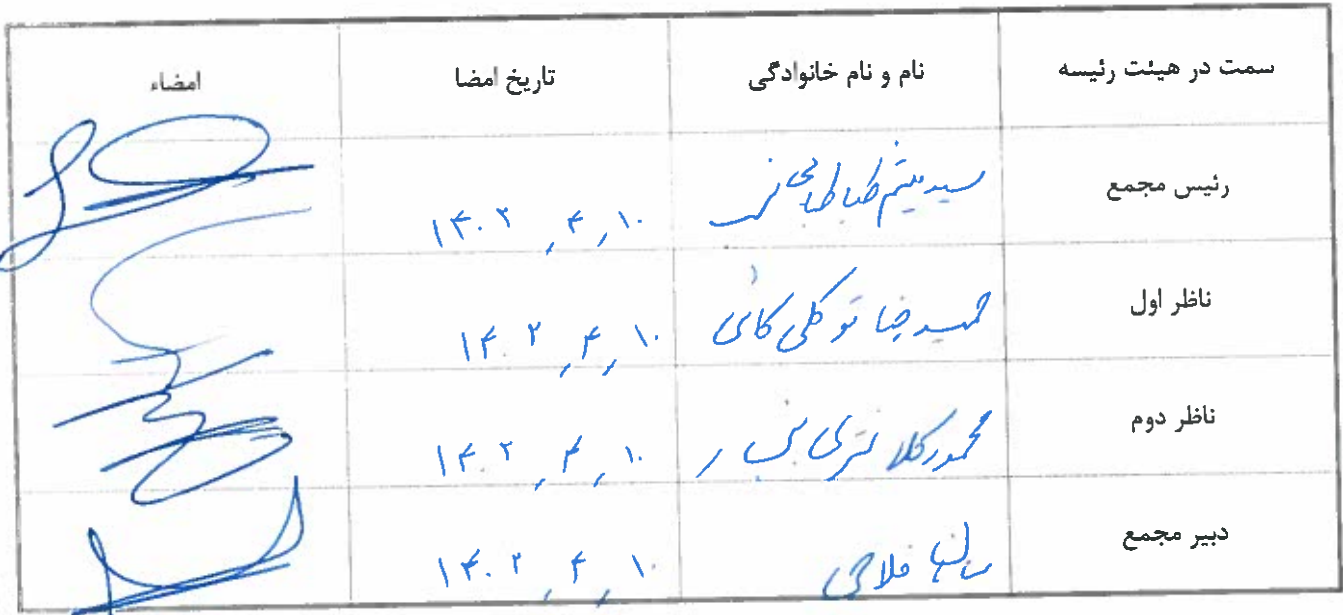 سمت در هیئت رئیسه نام و نام خانوادگی تاریخ امضا امضاء
رئیس مجمع سید میثم طباطبایی ۱۴۰۲/۴/۱۰
ناظر اول حمیدرضا توکلی کاشی ۱۴۰۲/۴/۱۰
ناظر دوم محمود کلانتری ۱۴۰۲/۴/۱۰
دبیر مجمع فلاحی ۱۴۰۲/۴/۱۰